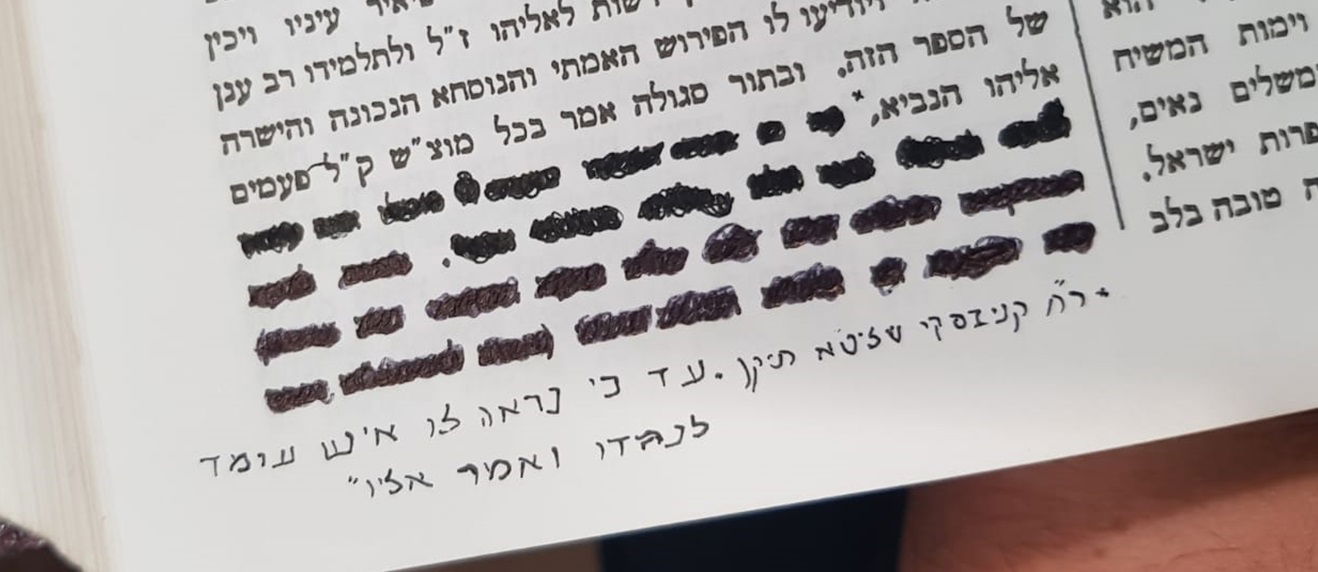 הוא
וימות המשיח
משלים נאים,
פרות ישראל.
ה טובה בלב
עיניו ויכין
לאליהו ז"ל ולתלמידו רב ענן
ויודיעו לו הפירוש האמתי והנוסחא הנכונה והישרה
של הספר הזה. ובתור סגולה אמר בכל מוצ"ש ק"ל פעמים
אליהו הנביא,*
* ר"ח קניבסקי שליט"א תיקן. עד כי נראה לו איש עומד
לנגדו ואמר אליו"